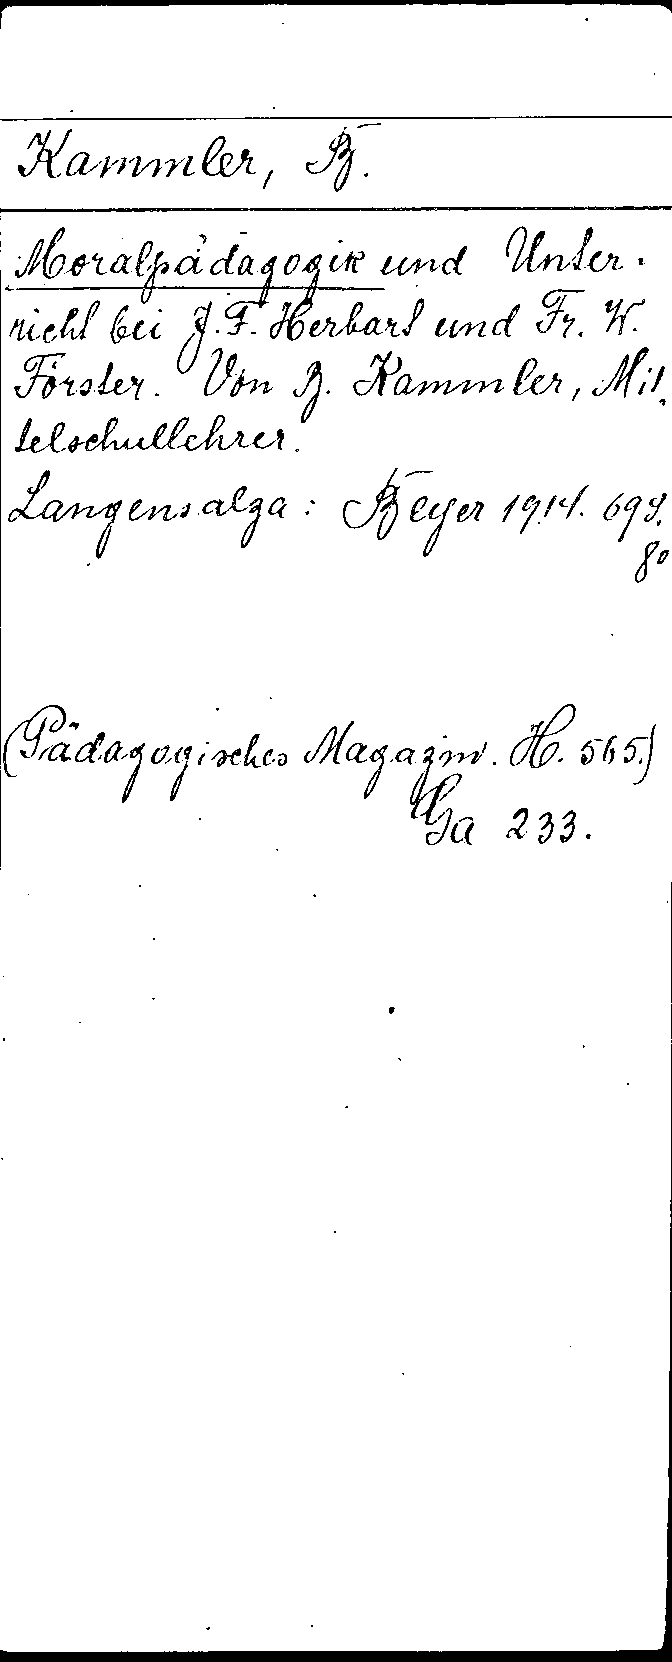 Kammler, B.
Moralpädagogik und Unter-
richt bei J. F. Herbart und Fr. W.
Förster. Von B. Kammler, Mit-
telschullehrer.
Langensalza: Beyer 1914. 69 S.
8°
(Pädagogisches Magazin. H. 565.)
Ga 233.